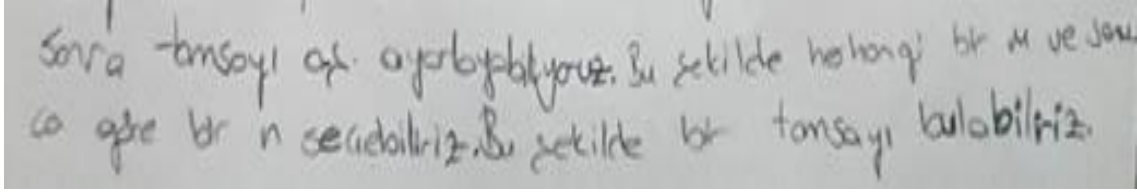 Sonra tamsayı ayarlayabiliyoruz. Bu şekilde herhangi bir M ve sonu
ca göre bir n seçebiliriz. Bu şekilde bir tamsayı bulabiliriz.